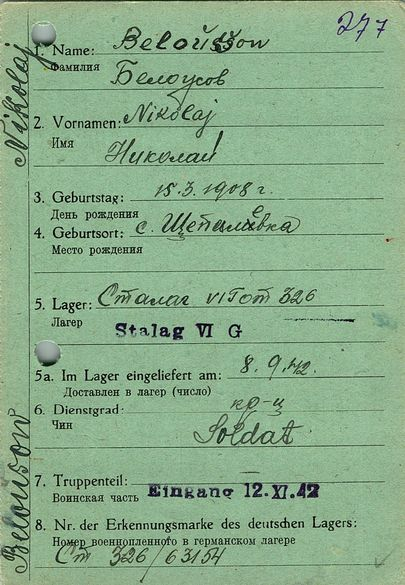 277
1. Name: Beloussow
Фамилия Белоусов
2. Vornamen: Nikolaj
Имя
Николай
3. Geburtstag: 15.3.1908 г.
День рождения
4. Geburtsort: с. Щепиловка
Место рождения
5. Lager: Сталаг VI г от 326
Лагер
Stalag VI G
5a. Im Lager eingeliefert am: 8.9.42.
Доставлен в лагер (число)
6. Dienstgrad: кр-ц
Чин
Soldat
7. Truppenteil:
Воинская часть Eingang 12. XI. 42
8. Nr. der Erkennungsmarke des deutschen Lagers:
Номер военнопленного в германском лагере
Ст 326/63154
Beloussow Nikolaj